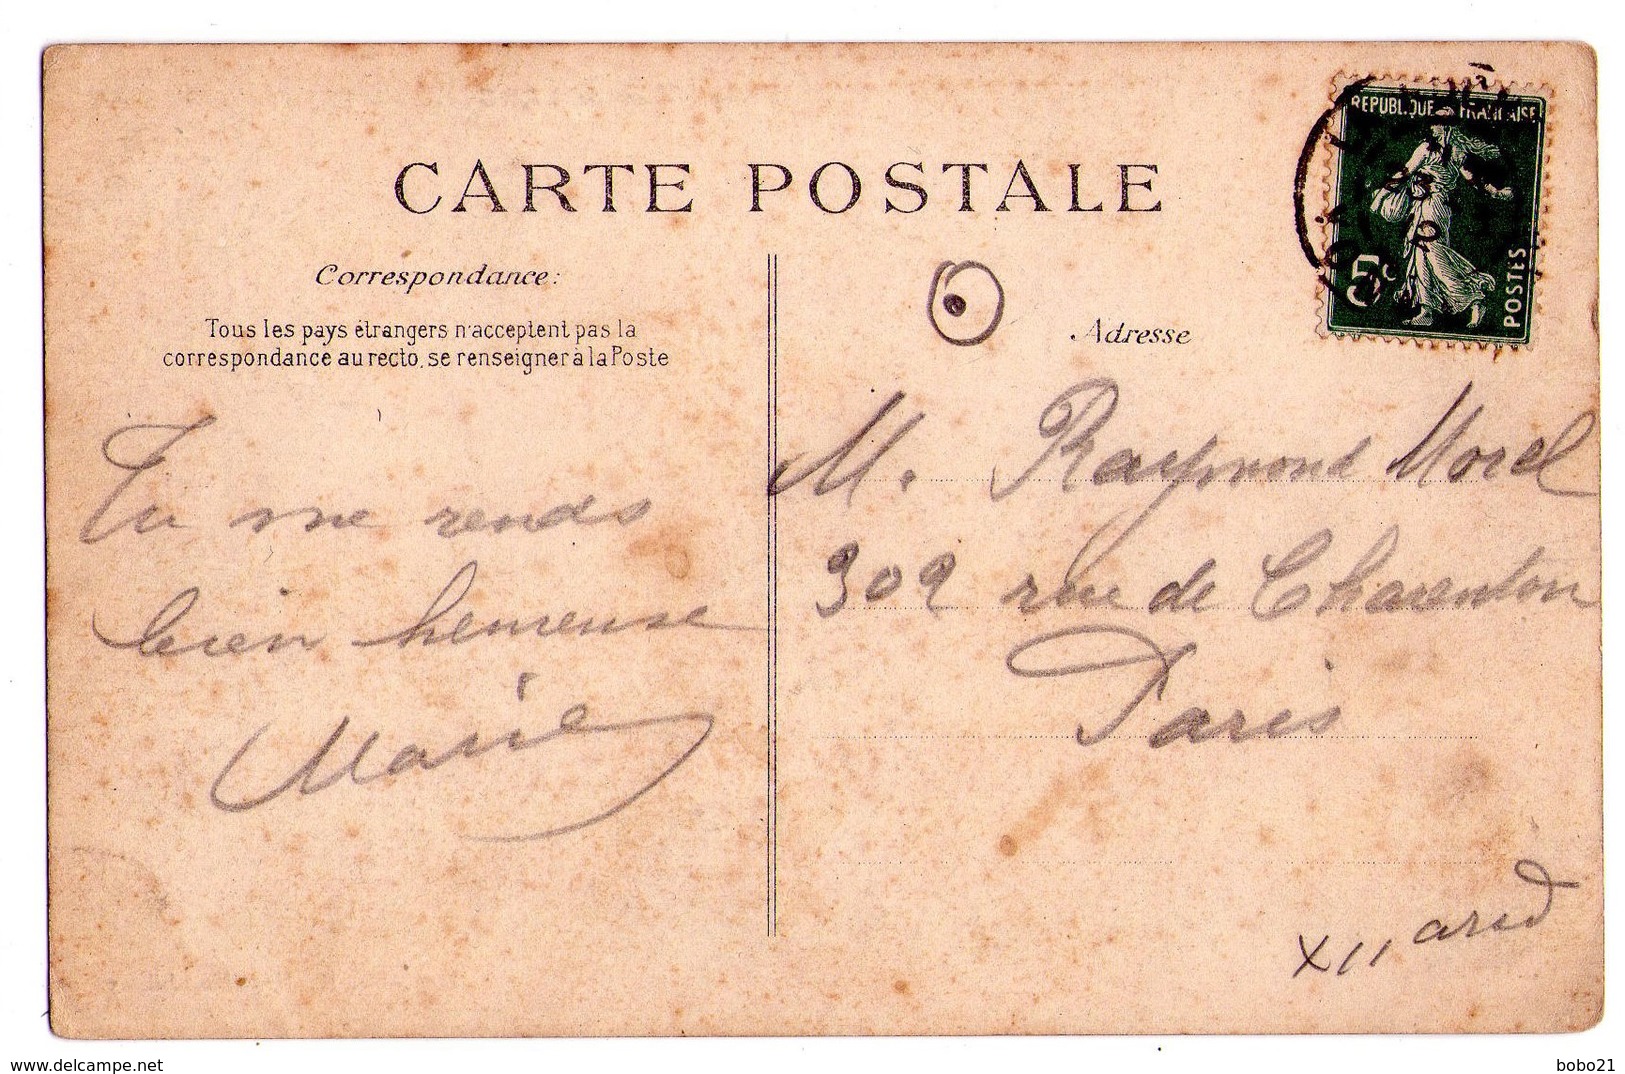 CARTE POSTALE
REPUBLIQUE FRANÇAISE
5c
POSTES
Correspondance:
Tous les pays étrangers n'acceptent pas la
correspondance au recto, se renseigner à la Poste
Adresse
Tu me rends
bien heureuse
Marie
M. Raymond Morel
302 rue de Charenton
Paris
XII arrd
www.delcampe.net
bobo21